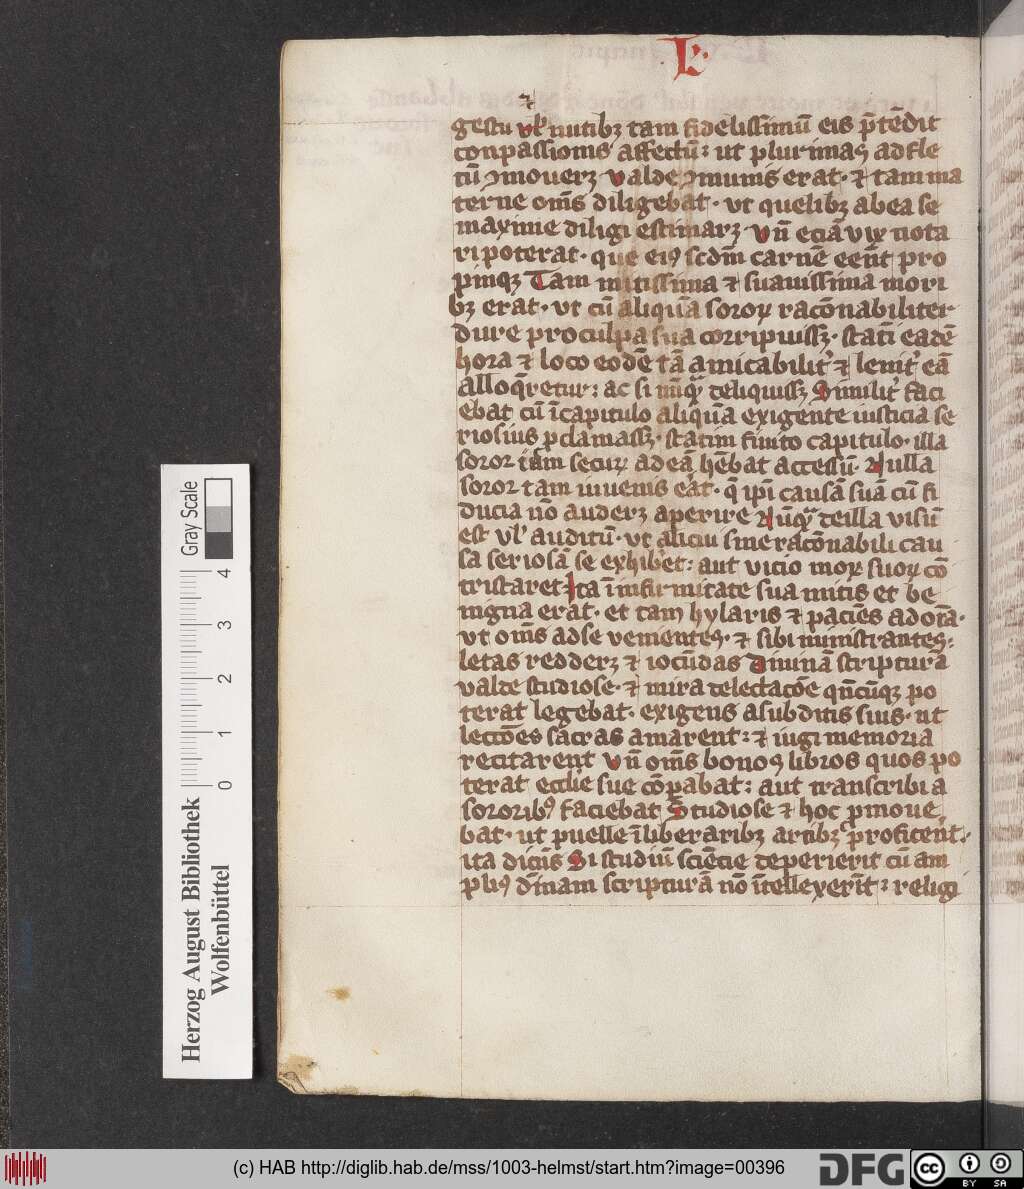 L
⁊
gestu vl' nutibꝫ tam fidelissimū eis p̄tēdit
conpassionis affectū: ut plurimas ad fle
tū ꝯmouerꝫ valde ꝯmunis erat· ⁊ tam ma
terne om̄s diligebat· vt quelibꝫ ab ea se
maxime diligi estimarꝫ· vn̄ eciā vix nota
ri poterat· que eiꝰ scdm̄ carnē een̄t pro
pinqꝫ Tam mitissima ⁊ suauissima mori
bꝫ erat· vt cū aliquā soroꝝ racōnabiliter
dure pro culpa sua corripuissꝫ· statī eadē
hora ⁊ loco eodē tā amicabilit' ⁊ lenit' eā
alloq̄retur: ac si nūqᷓ deliquissꝫ Similit' faci
ebat cū ī capitulo aliquā exigente iusticia se
riosius ꝓclamassꝫ· statim finito capitulo· illa
soror iam secuꝝ ad eā hēbat accessū· Nulla
soror tam iuuenis eāt· q̄ ipī causā suā cū fi
ducia nō auderꝫ aperire Nūqᷓ de illa visū
est vl' auditū· vt alicui sine racōnabili cau
sa seriosā se exhibet: aut vicio moꝝ suoꝝ cō
tristaret· Ita ī infirmitate sua mitis et be
nigna erat· et tam hylaris ⁊ paciēs ad om̄a·
vt om̄s ad se venientes· ⁊ sibi ministrantes:
letas redderꝫ ⁊ iocūdas Diuinā scripturā
valde studiose· ⁊ mira delectacōe qn̄cūqꝫ po
terat legebat· exigens a subditis suis· ut
lectōes sacras amarent: ⁊ iugi memoria
recitarent Vn̄ om̄s bonos libros quos po
terat ecclie sue cōꝑabat: aut transcribi a
sororibꝰ faciebat Studiose ⁊ hoc ꝓmoue
bat· ut puelle ī liberaribꝫ artibꝫ proficent·
ita dicēs Si studiū sciēcie deperierit cū am
plꝰ dīnam scripturā nō ītellexerīt: religi
Herzog August Bibliothek
Wolfenbüttel
0 1 2 3 4
Gray Scale
(c) HAB http://diglib.hab.de/mss/1003-helmst/start.htm?image=00396
DFG
cc BY SA